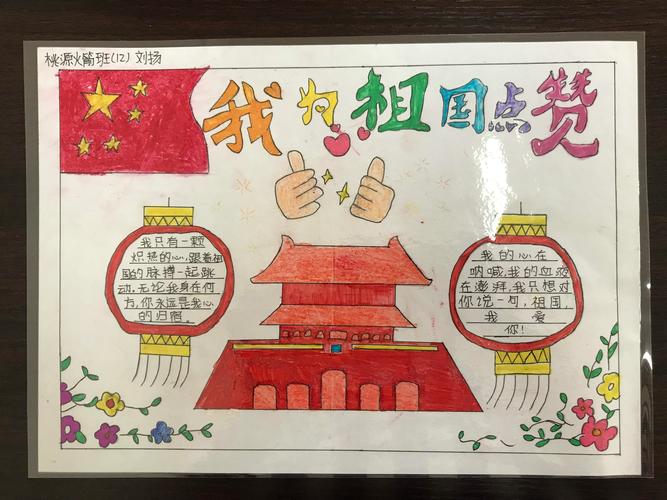 桃源火箭班(12) 刘扬
我为祖国点赞
我只有一颗
炽热的心,跟着祖
国的脉搏一起跳
动,无论我身在何
方,你永远是我心
的归宿。
我的心在
呐喊,我的血液
在澎湃,我只想对
你说一句,祖国,
我爱
你!